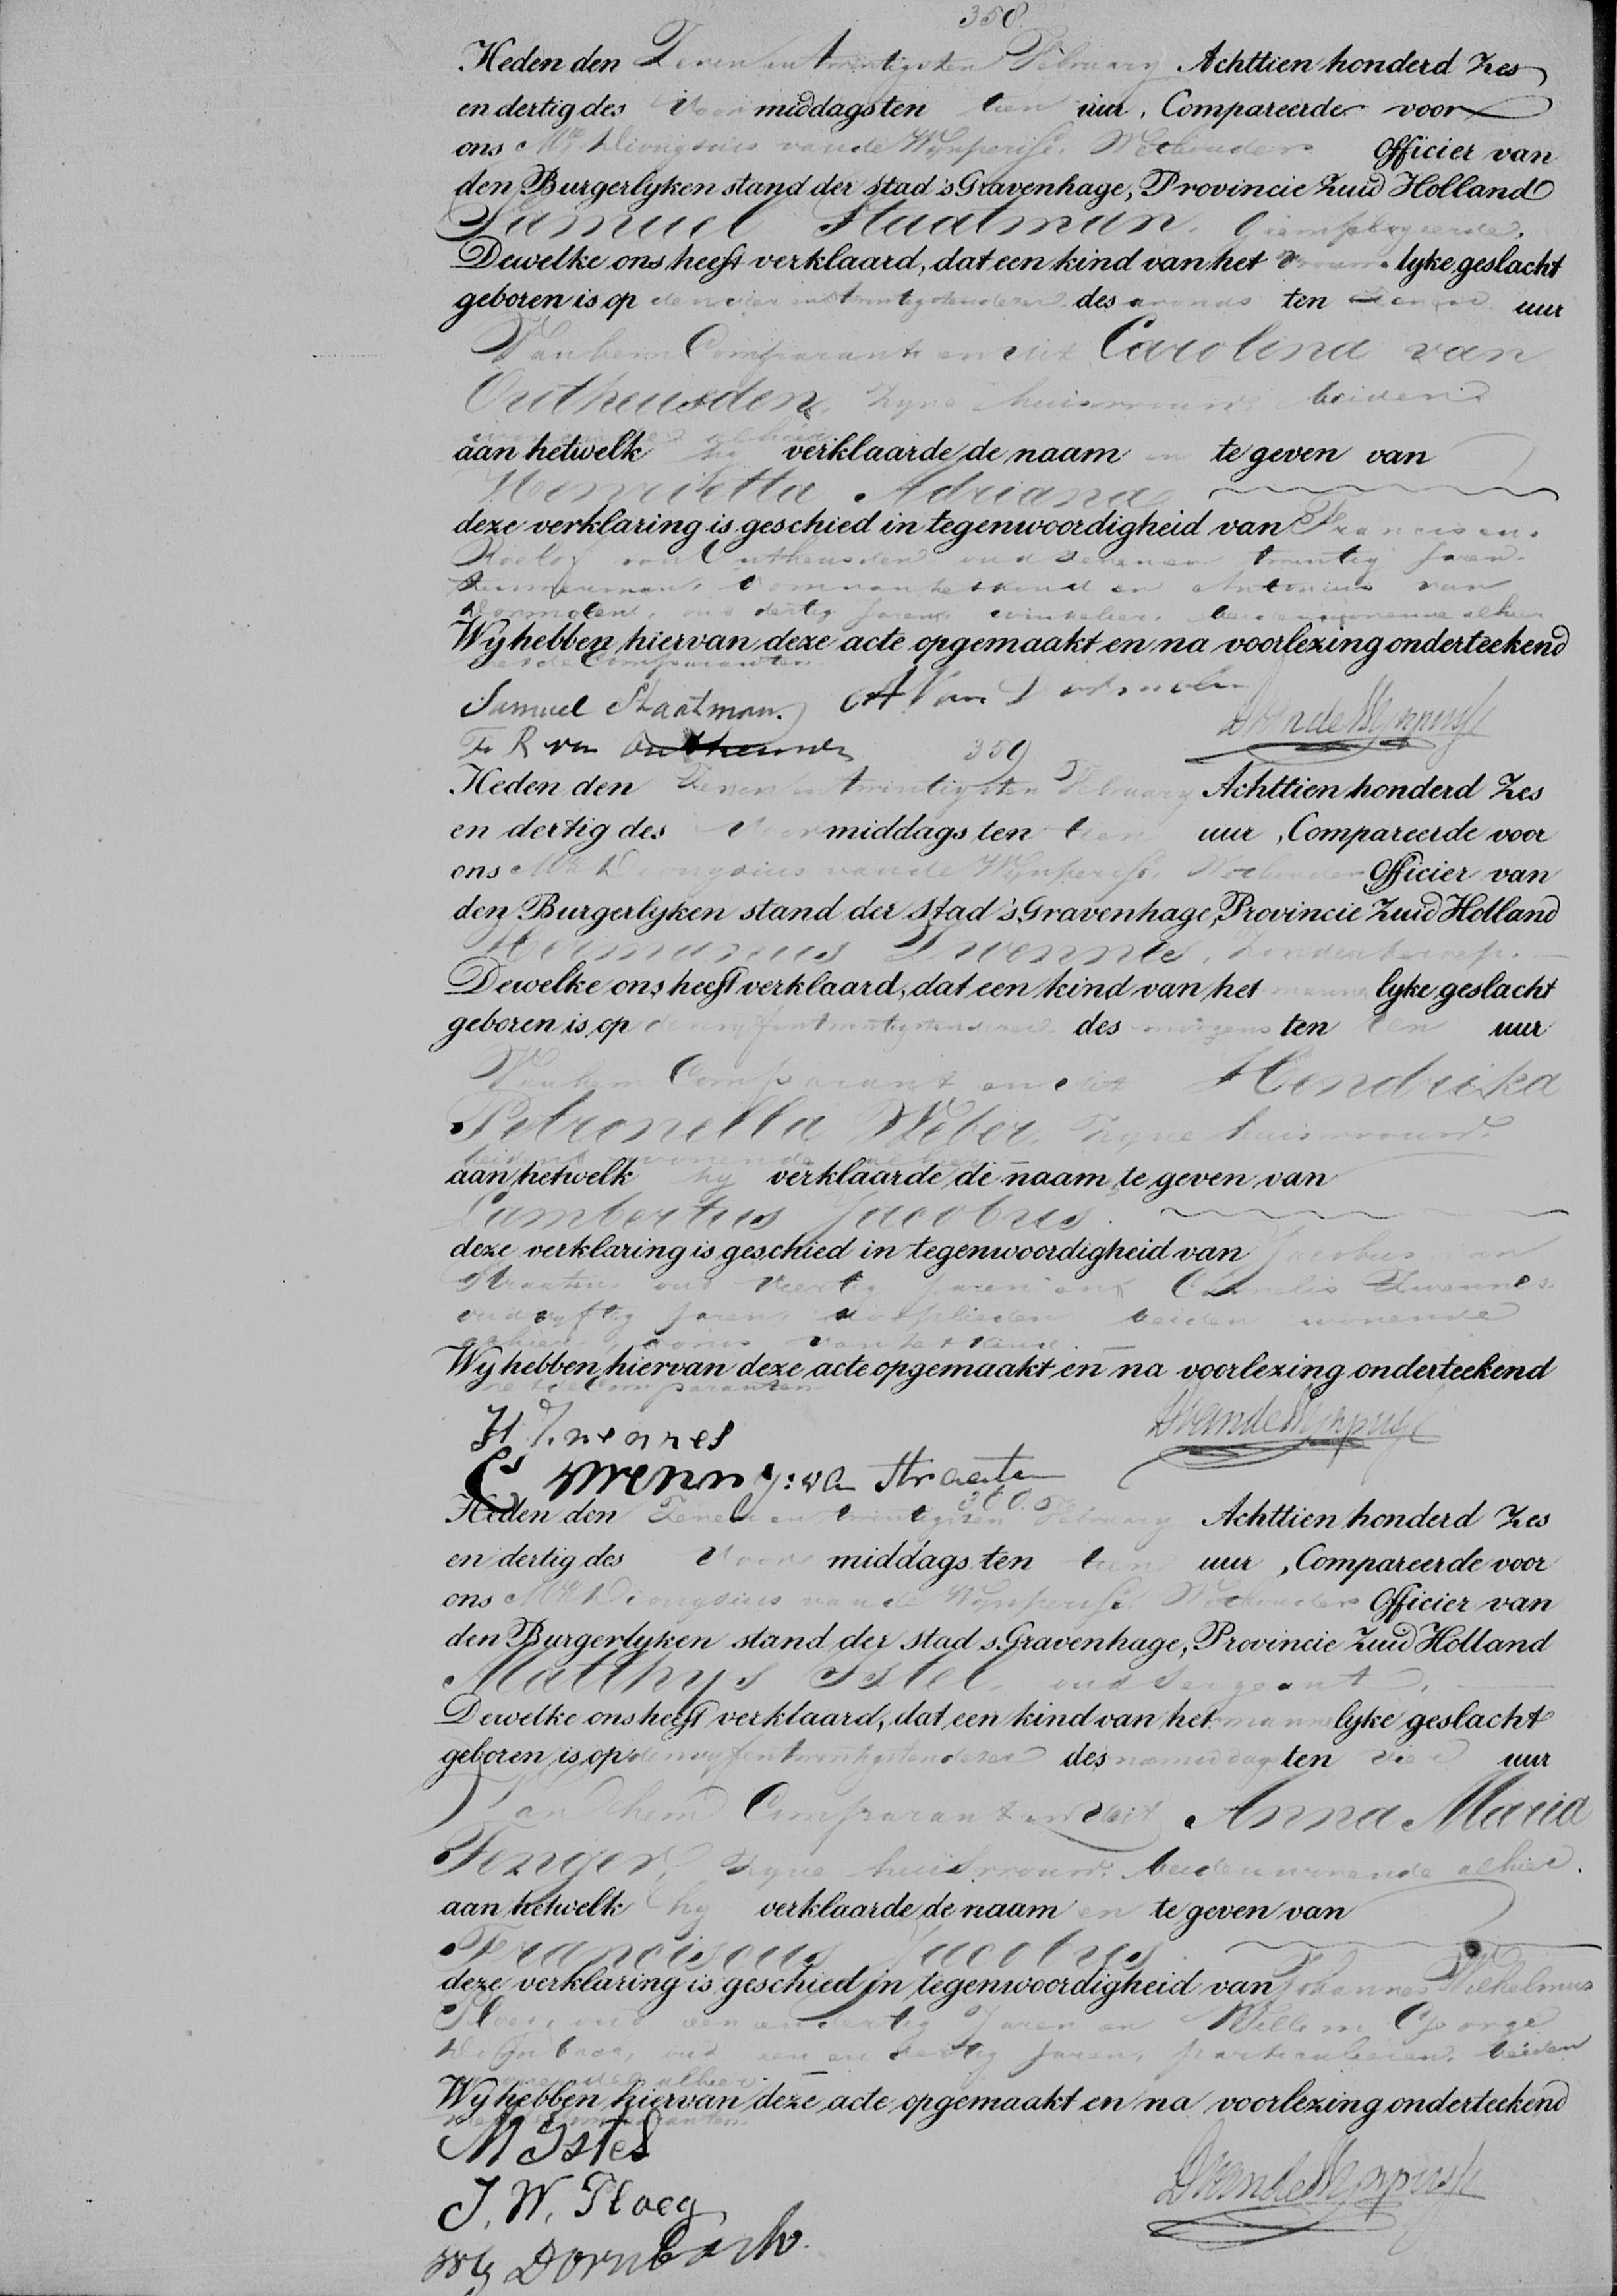 358.
Heden den Zeven en twintigsten February Achttien honderd Zes
en dertig des Voor middags ten tien uur, Compareerde voor
ons Mr. Dionysius van de Wynpersse, Wethouder Officier van
den Burgerlyken stand der stad 's Gravenhage, Provincie Zuid Holland
Samuel Staatman, Geemployeerde,
Dewelke ons heeft verklaard, dat een kind van het vrouwe lyke geslacht
geboren is op den vier en twintigsten dezer des avonds ten uur
Van hem Comparant en uit Carolina van
Outheusden, zyne huisvrouw, beiden
wonende alhier
aan hetwelk hy verklaarde de naam en te geven van
Henrietta Adriana
deze verklaring is geschied in tegenwoordigheid van Francis en
Roelof van Outheusden oud zeven en twintig Jaren
timmerman, Oom van het kind en Antonius van
Dormolen, oud dertig Jaren, winkelier, beiden wonende alhier
Wy hebben hiervan deze acte opgemaakt en na voorlezing onderteekend
met de Comparanten
Samuel Staatman. A Van Dormolen
F. R van Outheusden DvandeWynpersse
359
Heden den Zeven en twintigsten February Achttien honderd Zes
en dertig des Voor middags ten tien uur, Compareerde voor
ons Mr. Dionysius van de Wynpersse, Wethouder Officier van
den Burgerlyken stand der stad 's Gravenhage, Provincie Zuid Holland
Hermanus Zwennes, Zonder beroep.
Dewelke ons heeft verklaard, dat een kind van het manne lyke geslacht
geboren is op den vyf en twintigsten dezer des morgens ten tien uur
Van hem Comparant en uit Hendrika
Petronella Weber, Zyne huisvrouw,
beiden wonende alhier
aan hetwelk hy verklaarde de naam te geven van
Lambertus Jacobus
deze verklaring is geschied in tegenwoordigheid van Jacobus van
Straaten oud Veertig Jaren en Cornelis Zwennes
oud vyftig Jaren, beiden wonende
alhier, ooms van het kind
Wy hebben hiervan deze acte opgemaakt en na voorlezing onderteekend
met de Comparanten
H Zwennes DvandeWynpersse
Cs Zwennes J: van Straaten
360.
Heden den Zeven en twintigsten February Achttien honderd Zes
en dertig des Voor middags ten tien uur, Compareerde voor
ons Mr. Dionysius van de Wynpersse, Wethouder Officier van
den Burgerlyken stand der stad s Gravenhage, Provincie Zuid Holland
Matthys Istel, oud Sergeant,
Dewelke ons heeft verklaard, dat een kind van het manne lyke geslacht
geboren is op den vyf en twintigsten dezer des namiddags ten vier uur
Van hem Comparant en uit Anna Maria
Fenger, Zyne huisvrouw, beiden wonende alhier.
aan hetwelk hy verklaarde de naam en te geven van
Franciscus Jacobus
deze verklaring is geschied in tegenwoordigheid van Johannes Wilhelmus
Ploeg, oud een en dertig Jaren en Willem George
Dornbach, oud een en dertig Jaren, particulieren, beiden
wonende alhier.
Wy hebben hiervan deze acte opgemaakt en na voorlezing onderteekend
met de Comparanten
M Istel
J. W. Ploeg DvandeWynpersse
WG Dornbach.